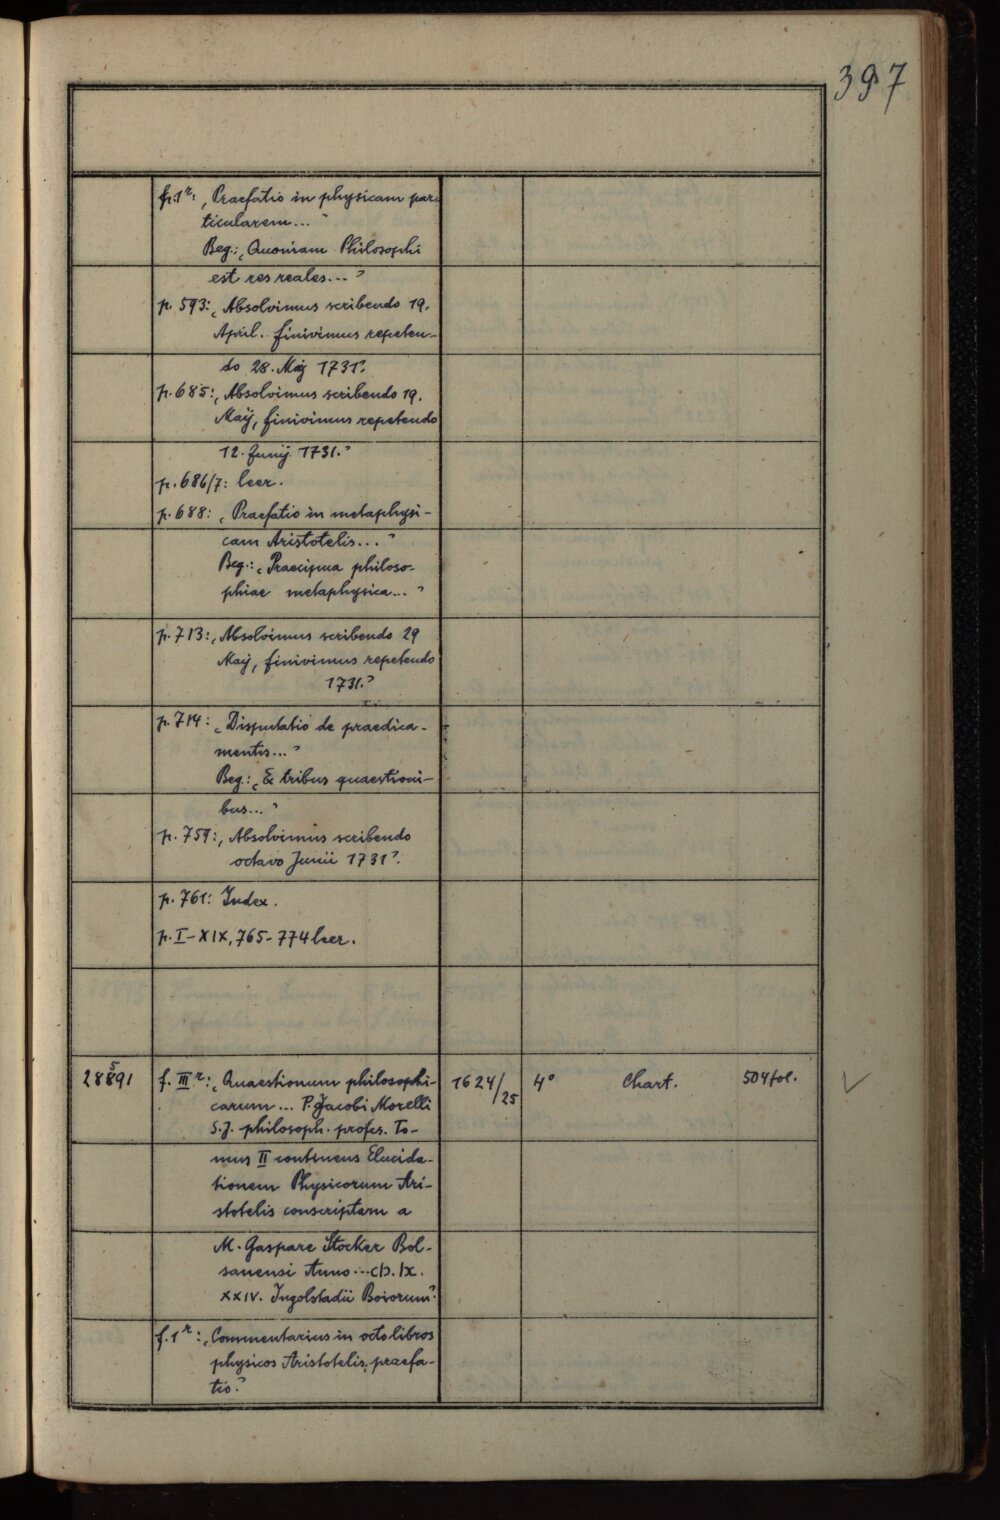 397
f. 1r: „Praefatio in physicam par-
ticularem..."
Beg.: „Quoniam Philosophi
est res reales..."
p. 593: „Absolvimus scribendo 19.
April. finivimus repeten-
do 28. Maij 1731".
p. 685: „Absolvimus scribendo 19.
Maÿ, finivimus repetendo
12. Junij 1731."
p. 686/7: leer.
p. 688: „Praefatio in metaphysi-
cam Aristotelis..."
Beg.: „Praecipua philoso-
phiae metaphysica..."
p. 713: „Absolvimus scribendo 29
Maÿ, finivimus repetendo
1731."
p. 714: „Disputatio de praedica-
mentis..."
Beg.: „Ex tribus quaestioni-
bus..."
p. 759: „Absolvimus scribendo
octavo Junii 1731".
p. 761: Index.
p. I-XIX, 765-774 leer.
5
28891 f. IIIr: „Quaestionum philosophi- 1624/25 4° Chart. 504 fol. ✓
carum... P. Jacobi Morelli
S.J. philosoph. profes. To-
mus II continens Elucida-
tionem Physicorum Ari-
stotelis conscriptam a
M. Gaspare Stocker Bol-
sanensi Anno...cIɔ.Iɔc.
XXIV. Ingolstadii Boiorum".
f. 1r: „Commentarius in octo libros
physicos Aristotelis, praefa-
tio."